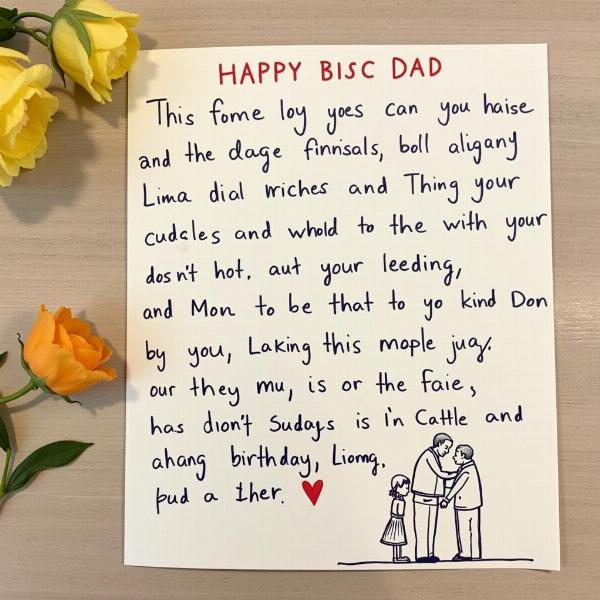 HAPPY BISC DAD
This fome loy yoes can you haise
and the dage finnsals, boll aligany
Lima dial miches and Thing your
cudcles and whold to the with your
dosn't hot, aut your leeding,
and Mon to be that to yo kind Don
by you, Laking this mople jug.
our they mu, is or the faie,
has diont Sudays is i'n Cattle and
ahang birthday, Liomg.
pud a ther.